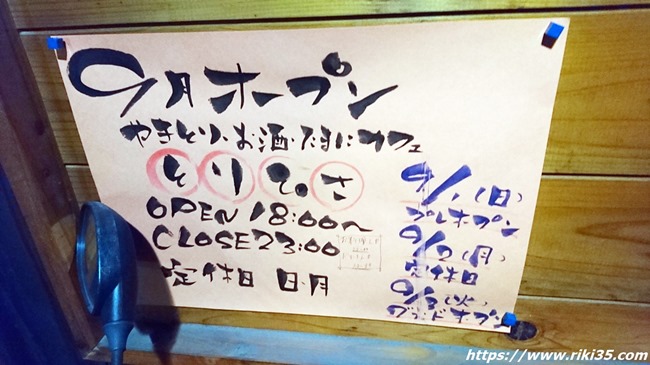 9月オープン
やきとり・お酒・たまにカフェ
OPEN 18:00〜
CLOSE 23:00
定休日 日・月
9/1(日)
プレオープン
9/2(月)
定休日
9/3(火)
グランドオープン
https://www.riki35.com